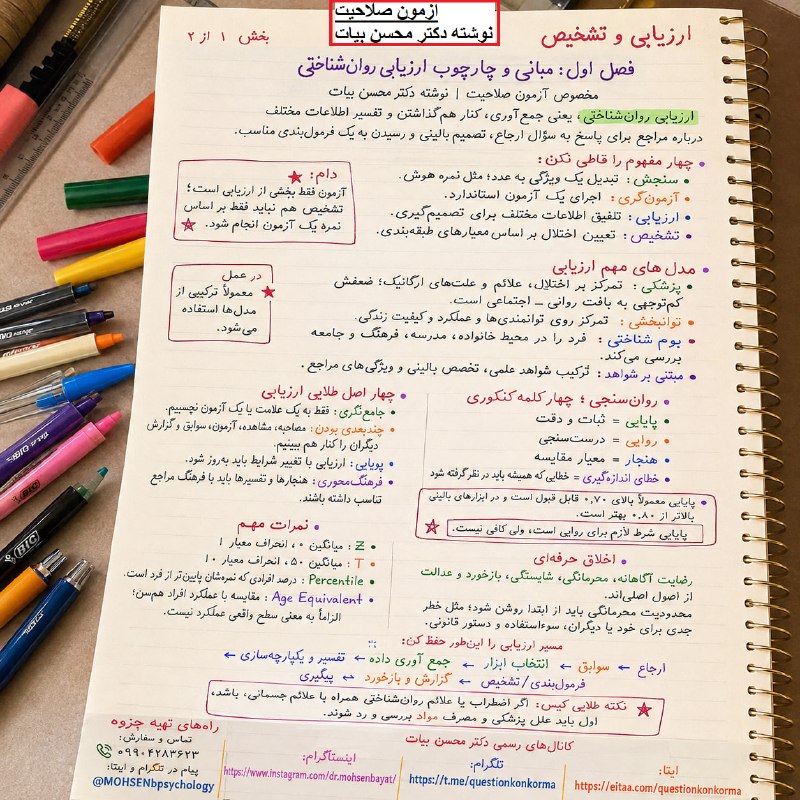 آزمون صلاحیت
نوشته دکتر محسن بیات
ارزیابی و تشخیص
بخش ۱ از ۲
فصل اول: مبانی و چارچوب ارزیابی روان‌شناختی
مخصوص آزمون صلاحیت | نوشته دکتر محسن بیات
ارزیابی روان‌شناختی، یعنی جمع‌آوری، کنار هم‌گذاشتن و تفسیر اطلاعات مختلف
درباره مراجع برای پاسخ به سؤال ارجاع، تصمیم بالینی و رسیدن به یک فرمول‌بندی مناسب.
چهار مفهوم را قاطی نکن:
سنجش: تبدیل یک ویژگی به عدد؛ مثل نمره هوش.
آزمون‌گری: اجرای یک آزمون استاندارد.
ارزیابی: تلفیق اطلاعات مختلف برای تصمیم‌گیری.
تشخیص: تعیین اختلال بر اساس معیارهای طبقه‌بندی.
دام:
آزمون فقط بخشی از ارزیابی است؛
تشخیص هم نباید فقط بر اساس
نمره یک آزمون انجام شود.
مدل های مهم ارزیابی
پزشکی: تمرکز بر اختلال، علائم و علت‌های ارگانیک؛ ضعفش
کم‌توجهی به بافت روانی – اجتماعی است.
توانبخشی: تمرکز روی توانمندی‌ها و عملکرد و کیفیت زندگی.
بوم شناختی: فرد را در محیط خانواده، مدرسه، فرهنگ و جامعه
بررسی می‌کند.
مبتنی بر شواهد: ترکیب شواهد علمی، تخصص بالینی و ویژگی‌های مراجع.
در عمل
معمولاً ترکیبی از
مدل‌ها استفاده
می‌شود.
روان‌سنجی؛ چهار کلمه کنکوری
پایایی = ثبات و دقت
روایی = درست‌سنجی
هنجار = معیار مقایسه
خطای اندازه‌گیری = خطایی که همیشه باید در نظر گرفته شود
پایایی معمولاً بالای ۰٫۷۰ قابل قبول است و در ابزارهای بالینی
بالاتر از ۰٫۸۰ بهتر است.
پایایی شرط لازم برای روایی است، ولی کافی نیست.
چهار اصل طلایی ارزیابی
جامع‌نگری: فقط به یک علامت یا یک آزمون نچسبیم.
چندبعدی بودن: مصاحبه، مشاهده، آزمون، سوابق و گزارش
دیگران را کنار هم ببینیم.
پویایی: ارزیابی با تغییر شرایط باید به‌روز شود.
فرهنگ‌محوری: هنجارها و تفسیرها باید با فرهنگ مراجع
تناسب داشته باشند.
نمرات مهم
Z: میانگین ۰، انحراف معیار ۱
T: میانگین ۵۰، انحراف معیار ۱۰
Percentile: درصد افرادی که نمره‌شان پایین‌تر از فرد است.
Age Equivalent: مقایسه با عملکرد افراد هم‌سن؛
الزاماً به معنی سطح واقعی عملکرد نیست.
اخلاق حرفه‌ای
رضایت آگاهانه، محرمانگی، شایستگی، بازخورد و عدالت
از اصول اصلی‌اند.
محدودیت محرمانگی باید از ابتدا روشن شود؛ مثل خطر
جدی برای خود یا دیگران، سوءاستفاده و دستور قانونی.
مسیر ارزیابی را این‌طور حفظ کن:
ارجاع ← سوابق ← انتخاب ابزار ← جمع آوری داده ← تفسیر و یکپارچه‌سازی ←
فرمول‌بندی / تشخیص ← گزارش و بازخورد ↔ پیگیری
نکته طلایی کیس: اگر اضطراب یا علائم روان‌شناختی همراه با علائم جسمانی، باشد،
اول باید علل پزشکی و مصرف مواد بررسی و رد شوند.
کانال‌های رسمی دکتر محسن بیات
ایتا:
https://eitaa.com/questionkonkorma
تلگرام:
https://t.me/questionkonkorma
اینستاگرام:
https://www.instagram.com/dr.mohsenbayat/
راه‌های تهیه جزوه
تماس و سفارش:
۰۹۹۰۴۲۸۳۶۲۳
پیام در تلگرام و ایتا:
@MOHSENbpsychology
BIC
BIC